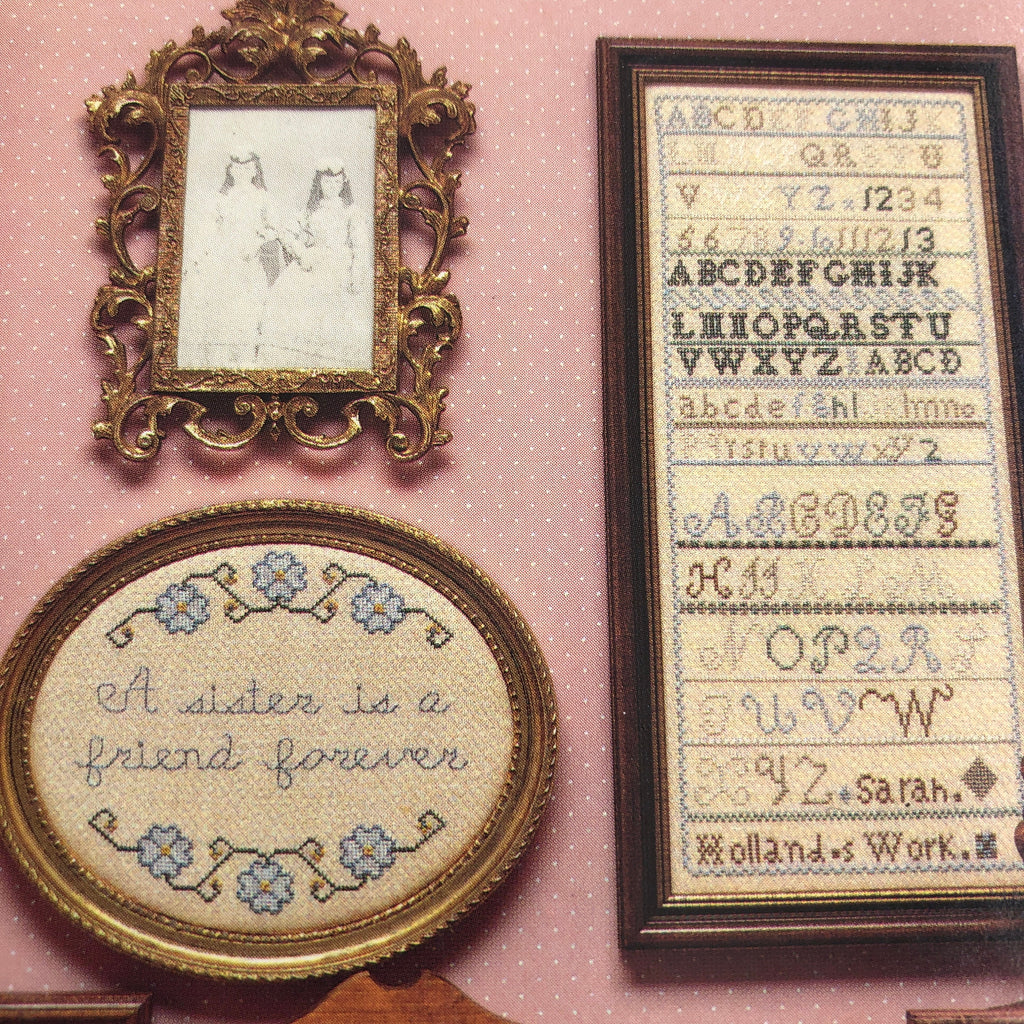 A sister is a
friend forever
ABCDEF GHIJK
QRSTU
V YZ. 1234
56789.10111213
ABCDEFGHIJK
LMNOPQRSTU
VWXYZ ABCD
abcdefghi lmno
pqrstuvwxyz
ABCDEFG
HIJKLM
NOPQRS
TUVW
XYZ. Sarah.
Holland.s Work.